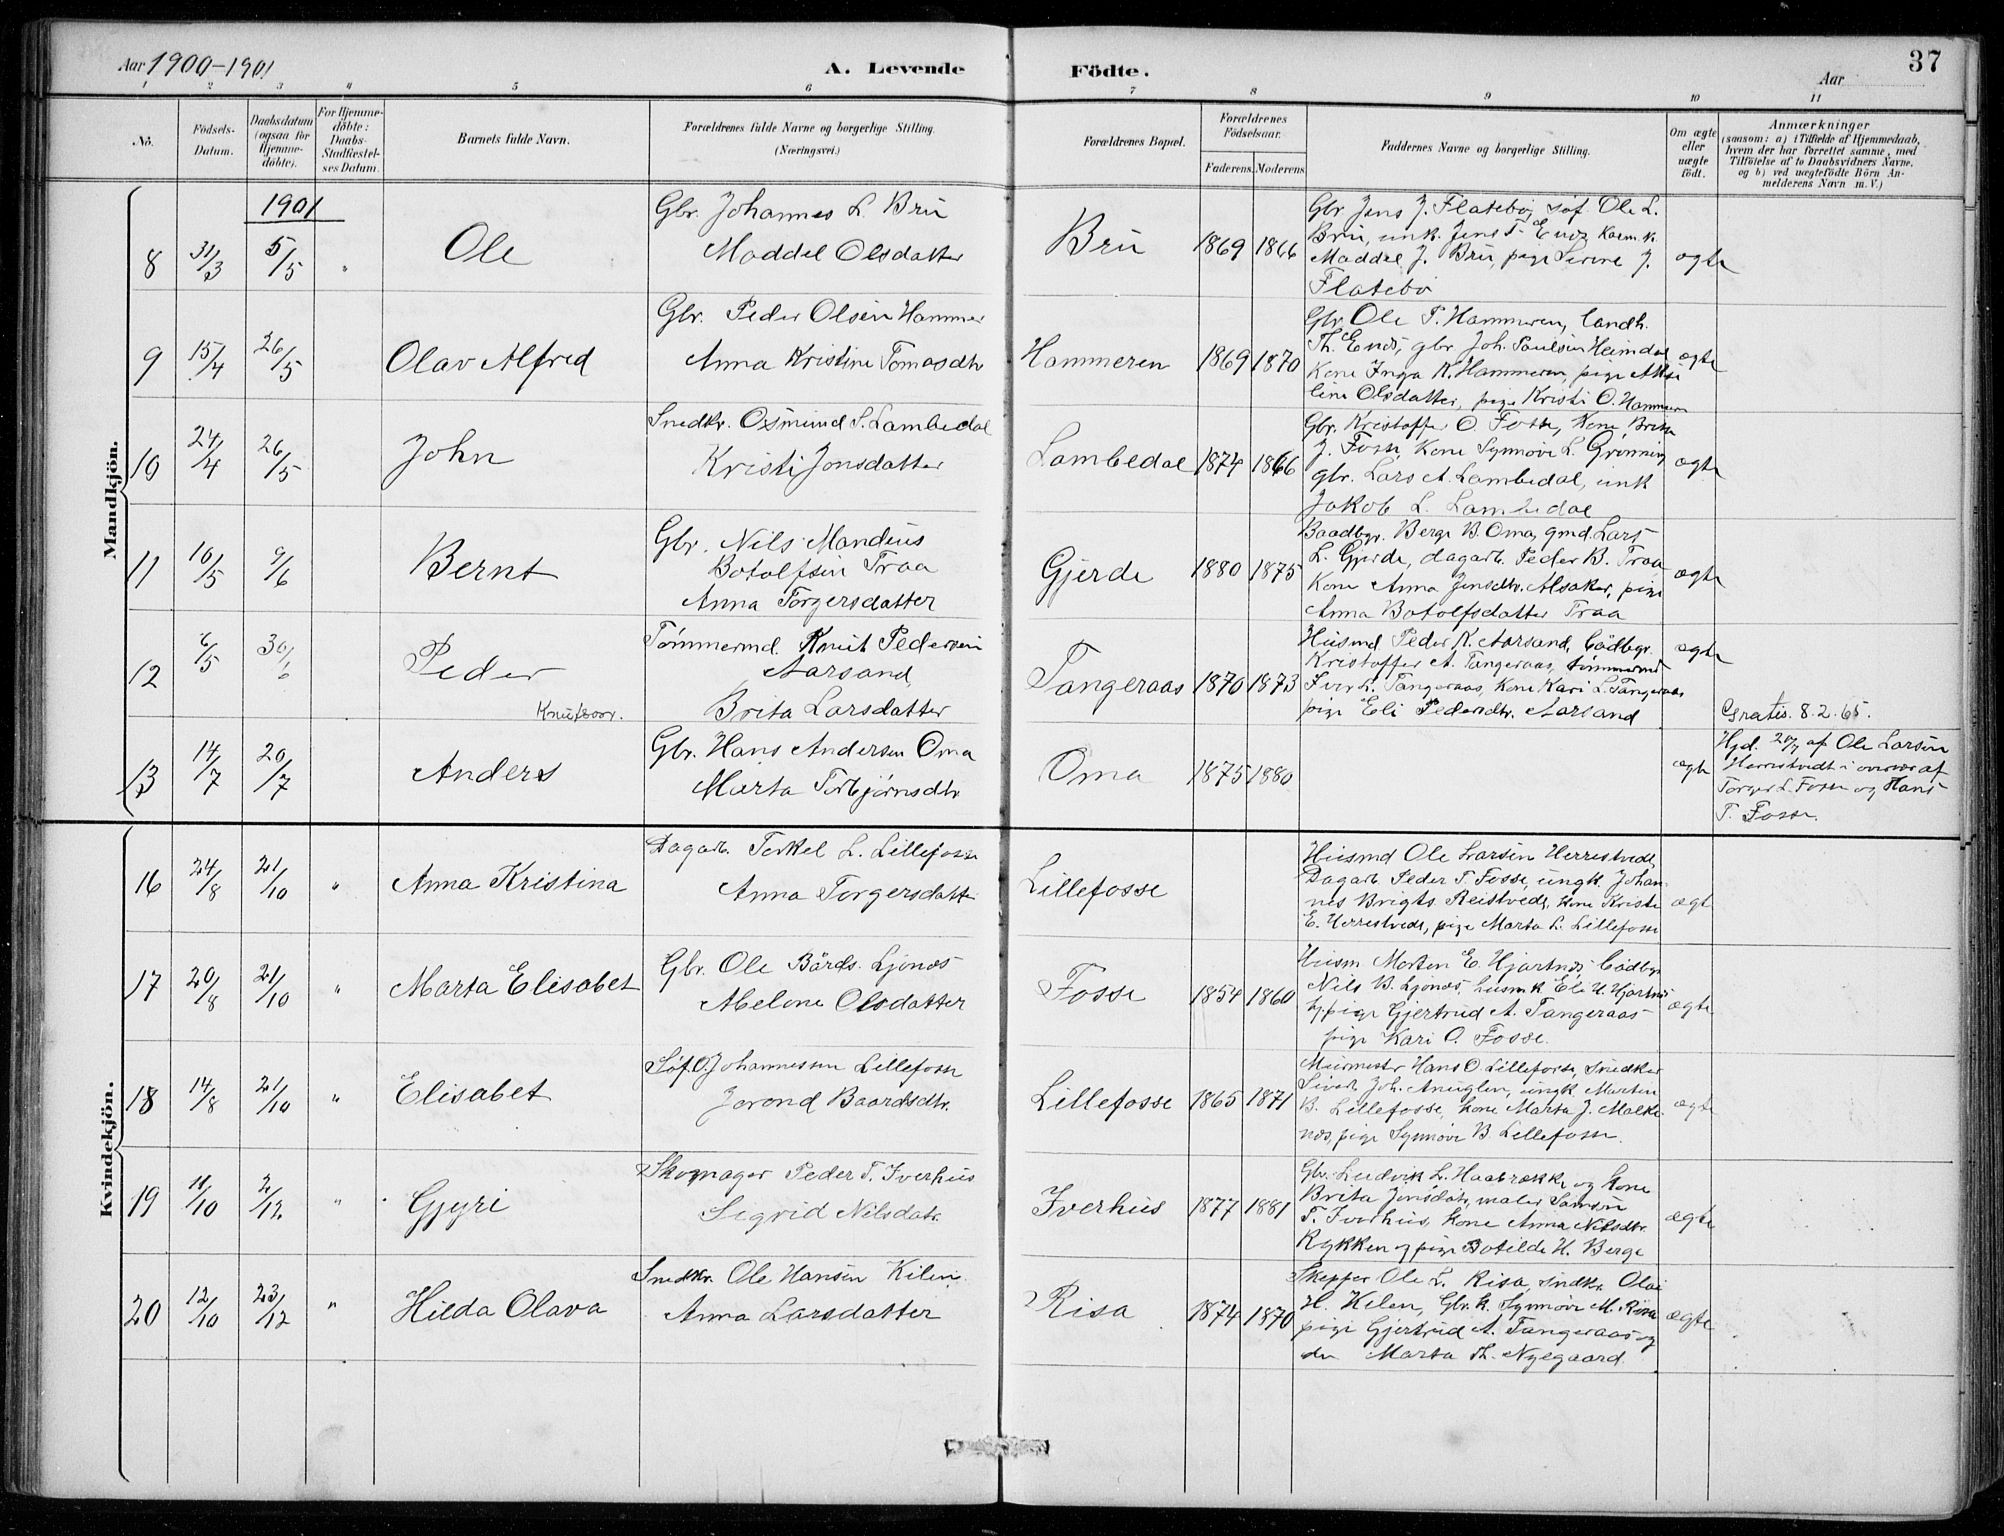 Aar 1900-1901
A. Levende
Födte.
Aar
37
1 2 3 4 5 6 7 8 9 10 11
No.
Födsels-Datum.
Daabsdatum (ogsaa for Hjemme-döbte).
For Hjemme-döbte: Daabs-Stadfæstel-ses Datum.
Barnets fulde Navn.
Forældrenes fulde Navne og borgerlige Stilling. (Næringsvei.)
Forældrenes Bopæl.
Forældrenes Födselsaar.
Faderens. Moderens.
Faddernes Navne og borgerlige Stilling.
Om ægte eller uægte födt.
Anmærkninger
(saasom: a) i Tilfælde af Hjemmedaab, hvem der har forrettet samme, med Tilföielse af to Daabsvidners Navne, og b) ved uægtefödte Börn An-melderens Navn m. V.)
Mandkjön.
1901
8 31/3 5/5 " Ole
Gbr. Johannes L. Bru
Maddel Olsdatter
Bru 1869 1866
Gbr Jens J. Flatebø, søf. Ole L.
Bru, unk. Jens T. Enes, kaarm.k.
Maddel J. Bru, pige J.
Flatebø
ægte
9 15/4 26/5 Olav Alfred
Gbr. Peder Olsen Hammer
Anna Kristine Tomasdtr
Hammeren 1869 1870
Gbr Ole P. Hammeren, landh.
Th. Enes, gbr Joh. Paulsen Heimdal
Kone Inga K. Hammeren, pige
line Olsdatter, pige Kristi O. Hammeren
ægte
10 24/4 26/5 John
Snedkr. Osmund S. Lambedal
Kristi Jonsdatter
Lambedal 1874 1866
Gbr. Kristoffer O Fosse, Kone Brita
J. Fosse, Kone Synnøve L. Grønning
gbr. Lars A. Lambedal, unk
Jakob L. Lambedal
ægte
11 10/5 9/6 Bernt
Gbr. Nils Mandius
Botolfsen Traa
Anna Torgersdatter
Gjerde 1880 1875
Baadbgr. Berge B. Oma, gmd. Lars
L. Gjerde, dagarb. Peder B. Traa
Kone Anna Jensdtr. Alsaker, pige
Anna Botolfsdatter Traa
ægte
12 6/5 30/6 Peder
Knutsson.
Tømmermd. Knut Pedersen
Aarsand,
Brita Larsdatter
Tangeraas 1870 1873
Husmd Peder K. Aarsand, baadbgr.
Kristoffer A. Tangeraas, tømmermd
Iver L. Tangeraas, Kone Kari L. Tangeraas
pige Eli Pedersdtr. Aarsand
ægte
Gratis. 8.2.65.
13 14/7 20/7 Anders
Gbr. Hans Andersen Oma
Marta Torbjørnsdtr.
Oma 1875 1880
ægte
Hjd. 20/7 af Ole Larsen
Herrestvedt i overvær af
Torger L. Fosse og Hans
T. Fosse.
Kvindekjön.
16 24/8 21/10 " Anna Kristina
Dagarb. Terkel L. Lillefosse
Anna Torgersdatter
Lillefosse
Husmd Ole Larsen Herrestvedt,
Dagarb. Peder T. Fosse, ungk. Johan-
nes Brigts. Reistvedt, Kone Kristi
E. Herrestvedt, pige Marta L. Lillefosse
ægt
17 20/8 21/10 " Marta Elisabet
Gbr. Ole Bårds. Ljones
Melone Olsdatter
Fosse 1854 1860
Husm Morten E. Hjartnes, baadbgr
Nils B. Ljones, husmk Eli H. Hjartnes
pige Gjertrud A. Tangeraas
pige Kari O. Fosse.
ægte
18 14/8 21/10 " Elisabet
Søf. O. Johannessen Lillefosse
Jorond Baardsdtr.
Lillefosse 1865 1871
Murmester Hans O. Lillefosse, Snedker
Sivert Joh. Aneuglen, ungk Morten
B. Lillefosse, kone Marta J. Malke-
nes, pige Synnøve B. Lillefosse.
ægte
19 11/10 2/12 " Gjyri
Skomager Peder T. Iverhus
Sigrid Nilsdatr.
Iverhus 1877 1881
Gbr. Ludvik L. Haabrække og Kone
Brita Jonsdatr, maler Samson
T. Iverhus, Kone Anna Nilsdtr.
Rykken og pige Botilde H. Berge
ægte
20 12/10 23/12 " Hilda Olava
Snedkr. Ole Hansen Kilen
Anna Larsdatter
Risa 1874 1870
Skepper Ole L. Risa, snedkr. Olai
H. Kilen, Gbr. k. Synnøve M. Risa
pige Gjertrud A. Tangeraas og
do Marta Th. Nygaard.
ægte